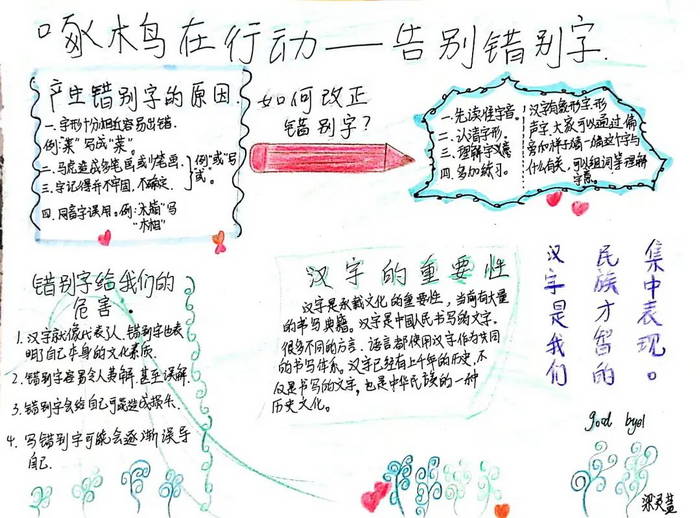 啄木鸟在行动——告别错别字.
产生错别字的原因.
一.字形十分相近容易出错.
二.马虎造成多笔画或少笔画.
三.字记得并不牢固,不确定.
四.同音字误用.例:木箱"写
"木相"
如何改正
错别字?
一.先读准字音.
二.认清字形.
三.理解字义
四.多加练习.
汉字有象形字,形
声字,大家可以通过偏
什么有关,可以组词等理解
字意.
错别字给我们的
危害.
1.汉字就像代表人.错别字也表
明了自己本身的文化素质.
2.错别字容易令人费解.甚至误解.
3.错别字会给自己可能造成损失.
4.写错别字可能会逐渐误导
自己.
汉字的重要性
汉字是承载文化的重要性,当前有大量
的书写典籍。汉字是中国人民书写的文字。
很多不同的方言、语言都使用汉字作为共同
的书写体系。汉字已经有上千年的历史,不
仅是书写的文字,也是中华民族的一种
历史文化。
汉字是我们
民族才智的
集中表现。
good bye!